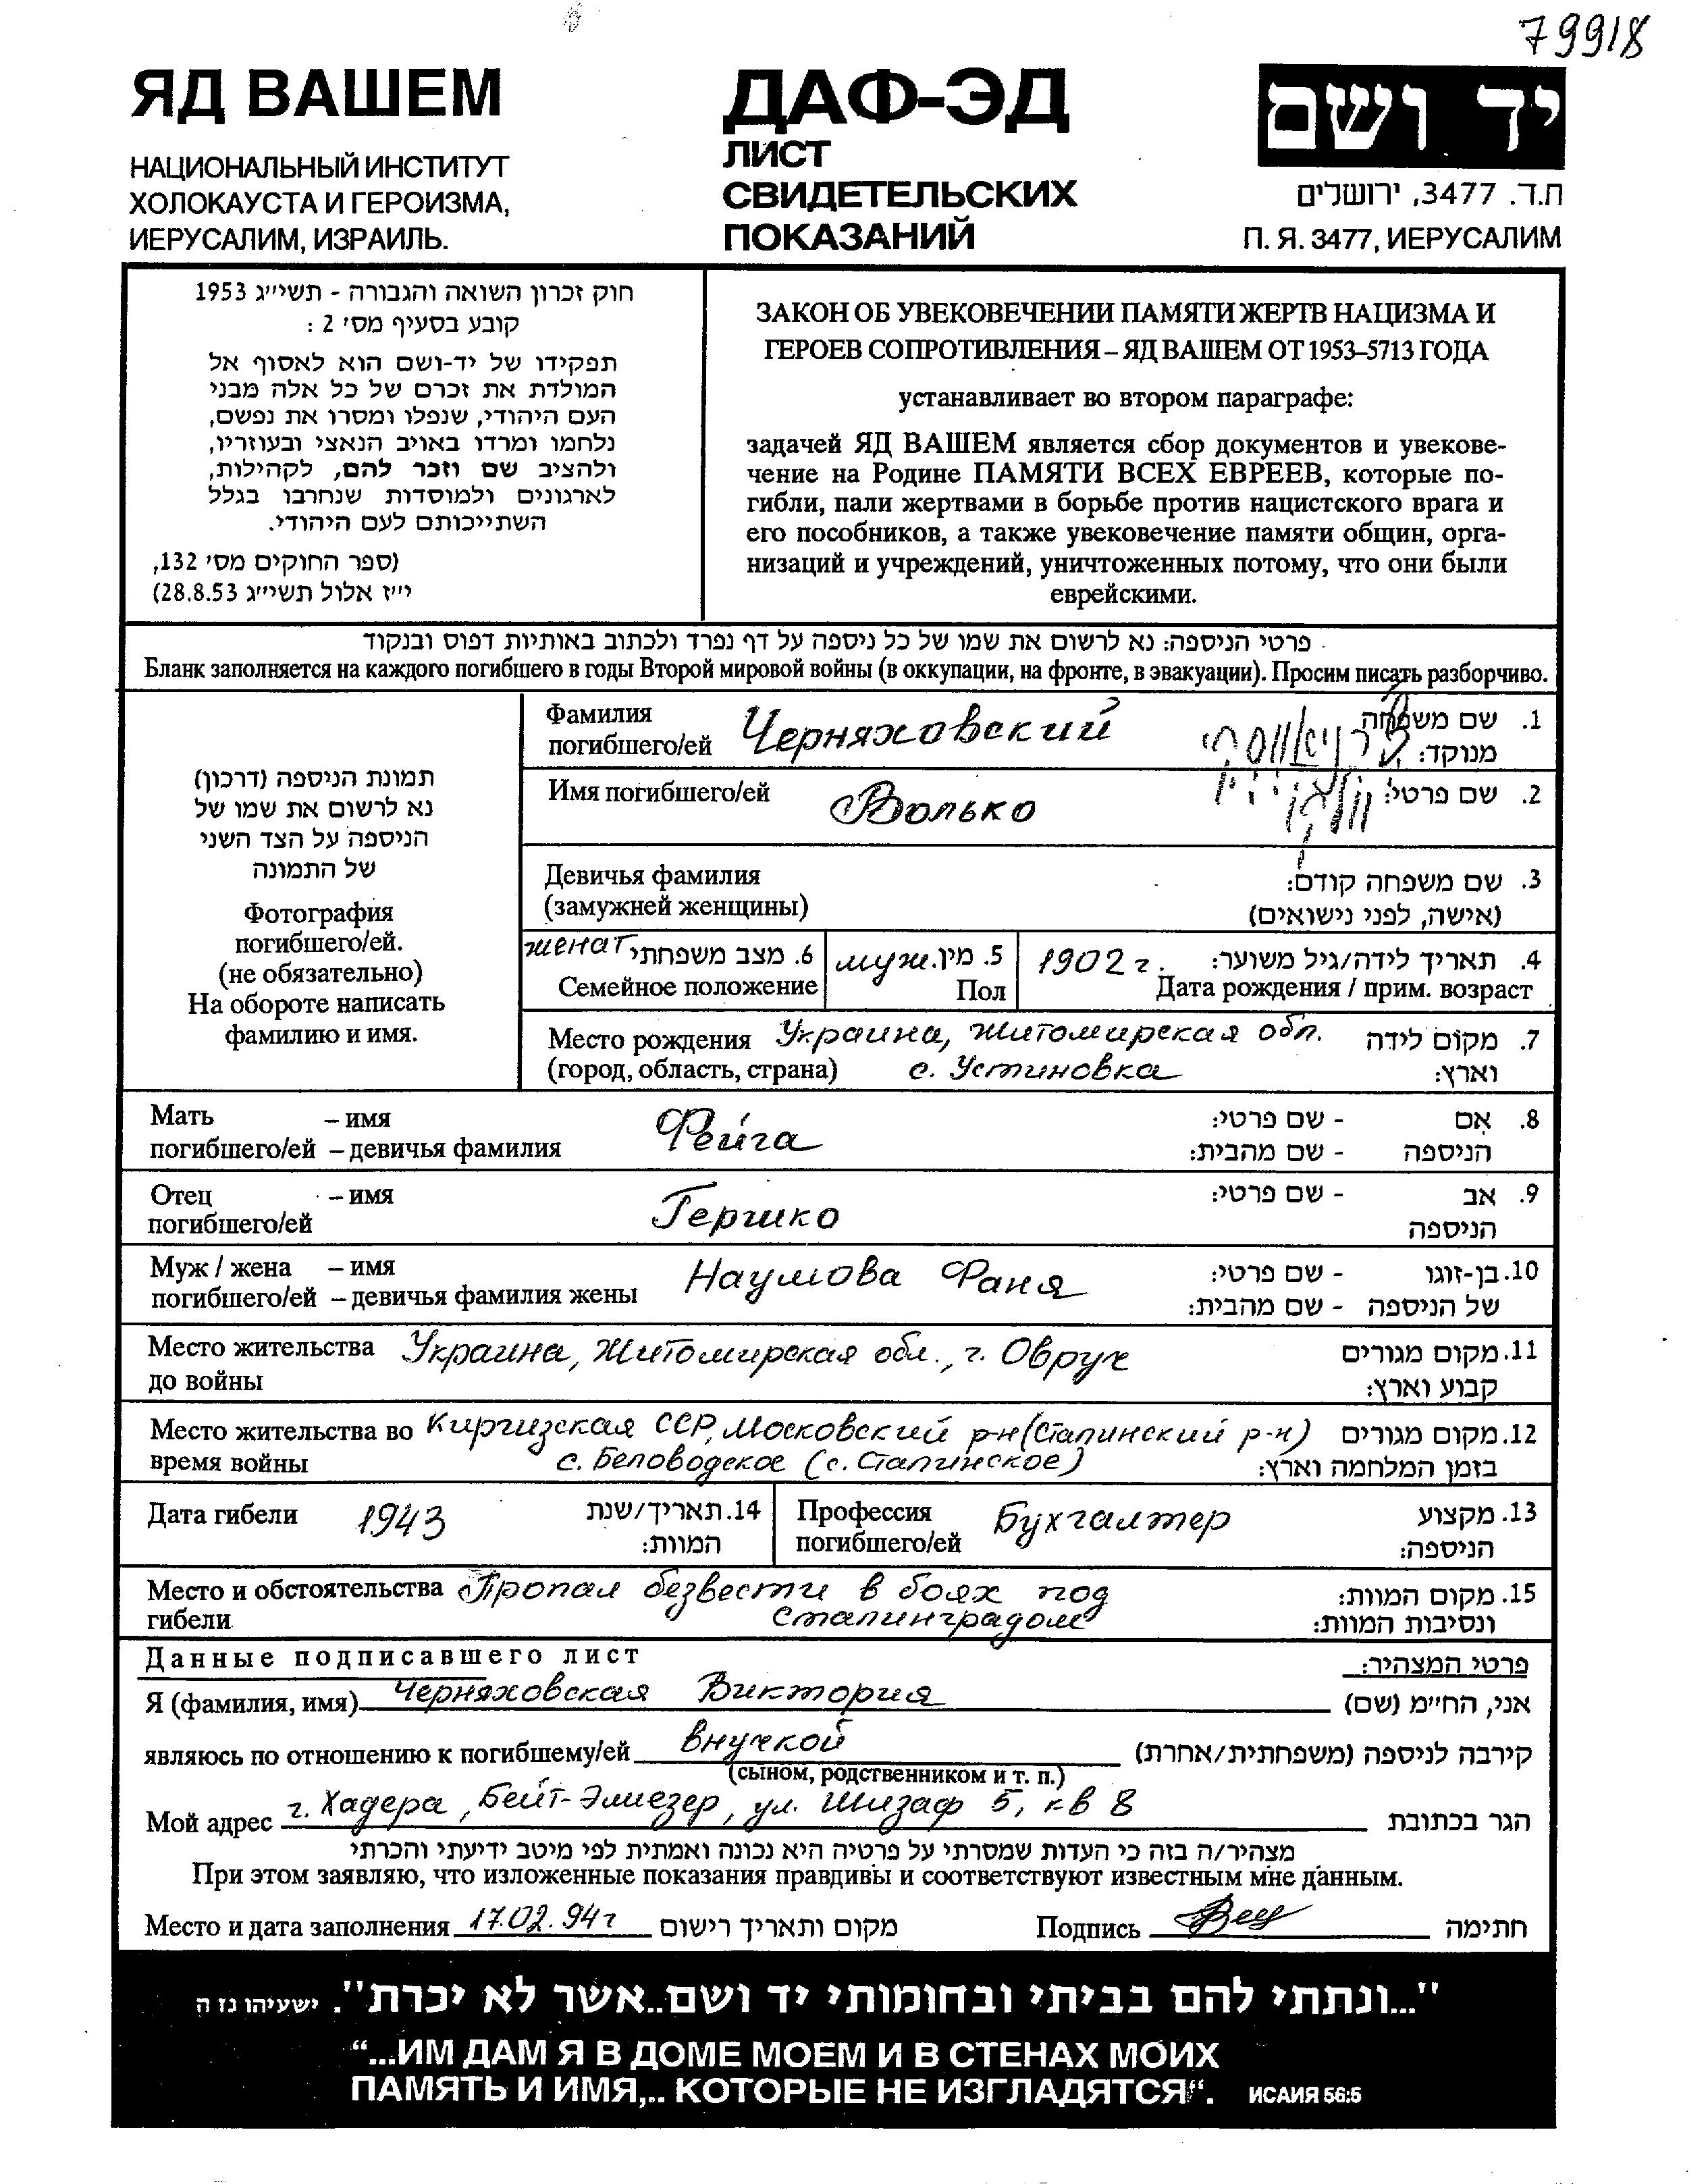 79918
ЯД ВАШЕМ
НАЦИОНАЛЬНЫЙ ИНСТИТУТ
ХОЛОКАУСТА И ГЕРОИЗМА,
ИЕРУСАЛИМ, ИЗРАИЛЬ.
ДАФ-ЭД
ЛИСТ
СВИДЕТЕЛЬСКИХ
ПОКАЗАНИЙ
יד ושם
ת.ד. 3477, ירושלים
П. Я. 3477, ИЕРУСАЛИМ
חוק זכרון השואה והגבורה - תשי״ג 1953
קובע בסעיף מס' 2 :
תפקידו של יד-ושם הוא לאסוף אל
המולדת את זכרם של כל אלה מבני
העם היהודי, שנפלו ומסרו את נפשם,
נלחמו ומרדו באויב הנאצי ובעוזריו,
ולהציב שם וזכר להם, לקהילות,
לארגונים ולמוסדות שנחרבו בגלל
השתייכותם לעם היהודי.
(ספר החוקים מס' 132,
י״ז אלול תשי״ג 28.8.53)
ЗАКОН ОБ УВЕКОВЕЧЕНИИ ПАМЯТИ ЖЕРТВ НАЦИЗМА И
ГЕРОЕВ СОПРОТИВЛЕНИЯ – ЯД ВАШЕМ ОТ 1953–5713 ГОДА
устанавливает во втором параграфе:
задачей ЯД ВАШЕМ является сбор документов и увекове-
чение на Родине ПАМЯТИ ВСЕХ ЕВРЕЕВ, которые по-
гибли, пали жертвами в борьбе против нацистского врага и
его пособников, а также увековечение памяти общин, орга-
низаций и учреждений, уничтоженных потому, что они были
еврейскими.
פרטי הניספה: נא לרשום את שמו של כל ניספה על דף נפרד ולכתוב באותיות דפוס ובנקוד
Бланк заполняется на каждого погибшего в годы Второй мировой войны (в оккупации, на фронте, в эвакуации). Просим писать разборчиво.
תמונת הניספה (דרכון)
נא לרשום את שמו של
הניספה על הצד השני
של התמונה
Фотография
погибшего/ей.
(не обязательно)
На обороте написать
фамилию и имя.
Фамилия Черняховский 1. שם משפחה
погибшего/ей מנוקד:
Имя погибшего/ей Волько 2. שם פרטי:
Девичья фамилия 3. שם משפחה קודם:
(замужней женщины) (אישה, לפני נישואים)
женат 6. מצב משפחתי муж. 5. מין 1902 г. 4. תאריך לידה/גיל משוער:
Семейное положение Пол Дата рождения / прим. возраст
Место рождения Украина, Житомирская обл. 7. מקום לידה
(город, область, страна) с. Устиновка וארץ:
Мать – имя Фейга - שם פרטי: 8. אם
погибшего/ей – девичья фамилия - שם מהבית: הניספה
Отец – имя Гершко - שם פרטי: 9. אב
погибшего/ей הניספה
Муж / жена – имя Наумова Фаня - שם פרטי: 10. בן-זוגו
погибшего/ей – девичья фамилия жены - שם מהבית: של הניספה
Место жительства Украина, Житомирская обл., г. Овруч 11. מקום מגורים
до войны קבוע וארץ:
Место жительства во Киргизская ССР, Московский р-н (Сталинский р-н) 12. מקום מגורים
время войны с. Беловодское (с. Сталинское) בזמן המלחמה וארץ:
Дата гибели 1943 14. תאריך/שנת Профессия Бухгалтер 13. מקצוע
המוות: погибшего/ей הניספה:
Место и обстоятельства Пропал безвести в боях под 15. מקום המוות:
гибели Сталинградом ונסיבות המוות:
Данные подписавшего лист פרטי המצהיר:
Я (фамилия, имя) Черняховская Виктория אני, החי״מ (שם)
являюсь по отношению к погибшему/ей внучкой קירבה לניספה (משפחתית/אחרת)
(сыном, родственником и т. п.)
Мой адрес г. Хадера, Бейт-Элиезер, ул. Шизаф 5, кв 8 הגר בכתובת
מצהיר/ה בזה כי העדות שמסרתי על פרטיה היא נכונה ואמתית לפי מיטב ידיעתי והכרתי
При этом заявляю, что изложенные показания правдивы и соответствуют известным мне данным.
Место и дата заполнения 17.02.94г מקום ותאריך רישום Подпись חתימה
"...ונתתי להם בביתי ובחומותי יד ושם..אשר לא יכרת". ישעיהו נז ה
“...ИМ ДАМ Я В ДОМЕ МОЕМ И В СТЕНАХ МОИХ
ПАМЯТЬ И ИМЯ,.. КОТОРЫЕ НЕ ИЗГЛАДЯТСЯ“. ИСАИЯ 56:5